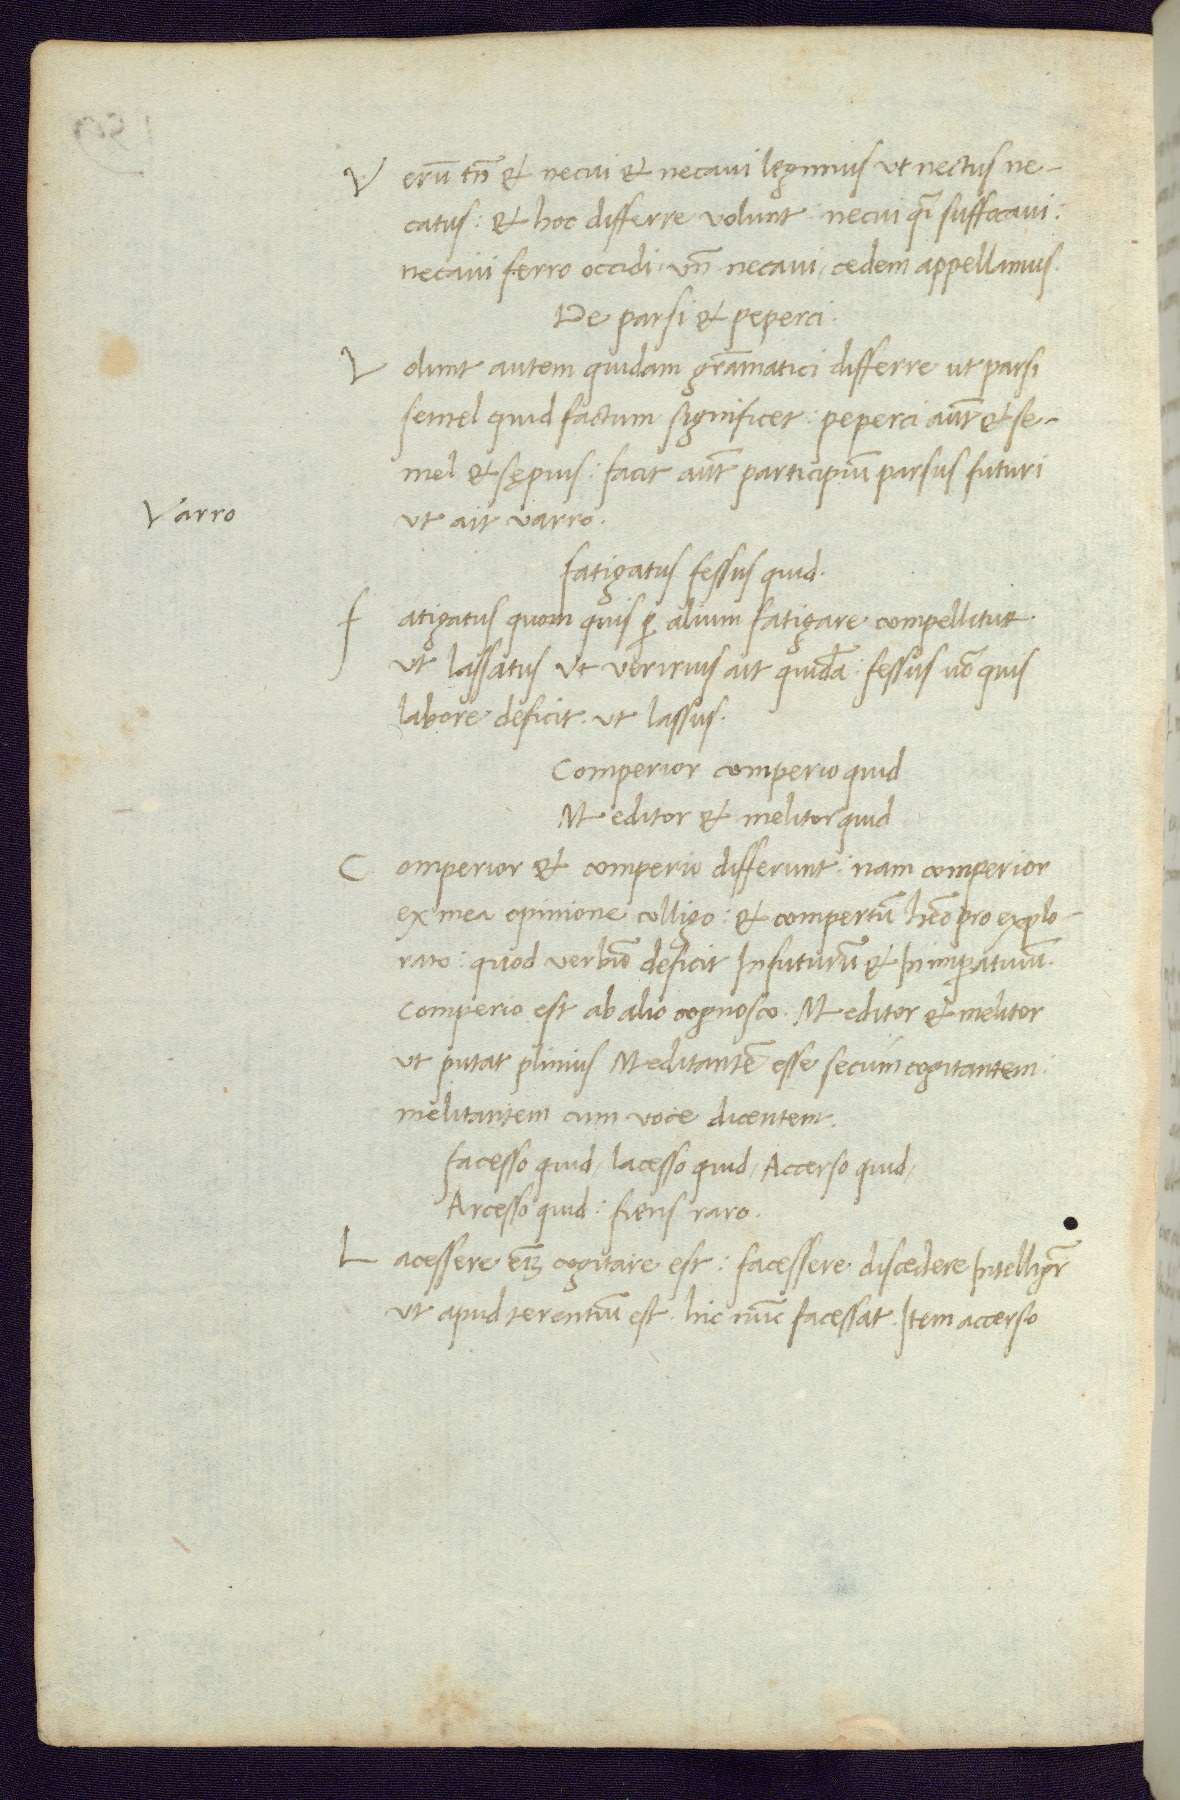 Verũ tñ & necui & necaui legimus ut nectus ne-
catus: & hoc differre volunt: necui q̃i suffocaui:
necaui ferro occidi. vñ necaui, cedem appellamus.
De parsi & peperci.
Volunt autem quidam grãmatici differre ut parsi
semel quid factum significet: peperci aũt & se-
mel & sępius: facit aũt participiũ parsus futuri
Varro
ut ait varro.
fatigatus fessus quid.
fatigatus quom quis ꝑ alium fatigare compellitur.
ut lassatus ut ait quidã: fessus uõ quis
labore deficit. ut lassus.
Comperior comperio quid
Meditor & melitor quid
Comperior & comperio differunt: nam comperior
ex mea opinione colligo: & compertũ hẽo pro explo-
rato: quod verbũ deficit In futurũ & In imꝑatiuũ.
Comperio est ab alio cognosco. Meditor & melitor
ut putat plinius Meditantẽ esse secum cogitantem:
melitantem cum voce dicentem.
facesso quid, lacesso quid, Accerso quid,
Arcesso quid: fiens raro.
Lacessere eñ cogitare est: facessere discedere Intelligr̃
ut apud terentiũ est. hic nũc facessat. Item accerso